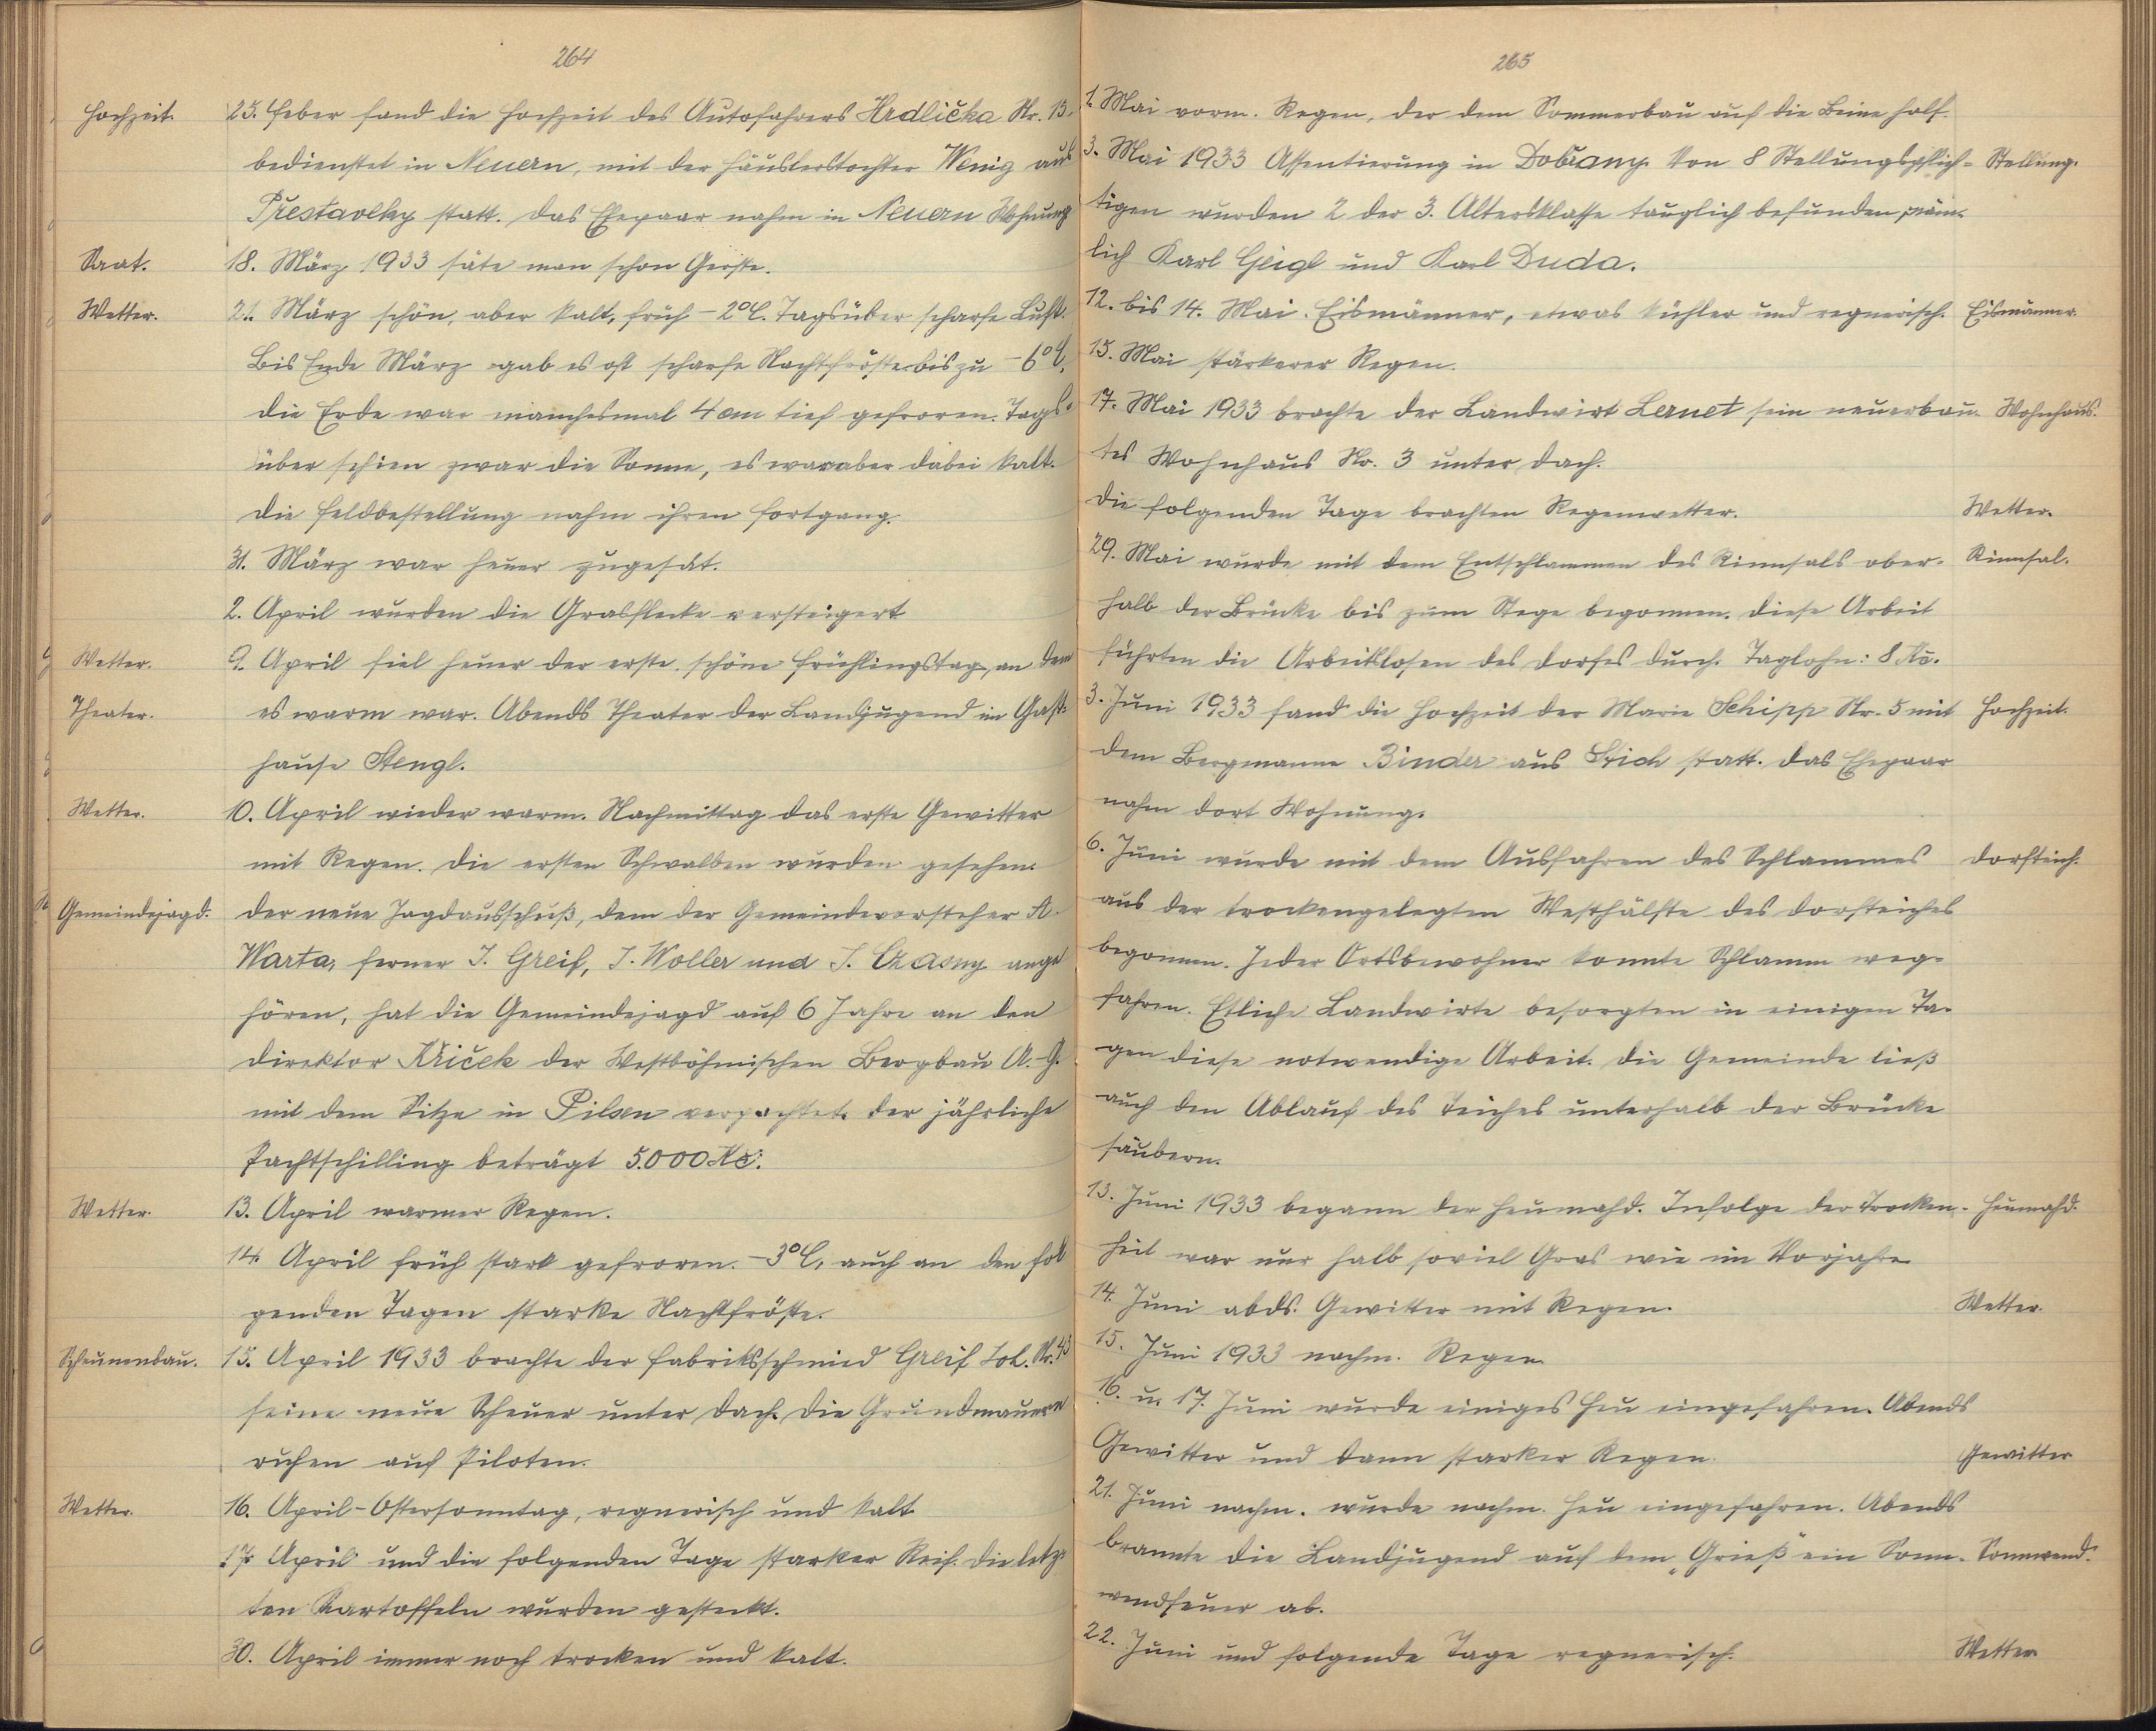 264
Hochzeit. 25. Feber fand die Hochzeit des Autofahrers Hrdlička Nr. 15.
bedienstet in Neuern, mit der Häuslerstochter Wenig aus
Přestavlky statt. Das Ehepaar nahm in Neuern Wohnung
Saat. 18. März 1933 säte man schon Gerste.
Wetter. 21. März schön, aber kalt, früh -2°C. Tagsüber scharfe Luft.
Bis Ende März gab es oft scharfe Nachtfröste bis zu -6°C,
die Erde war manchesmal 4 cm tief gefroren. Tags-
über schien zwar die Sonne, es war aber dabei kalt.
Die Feldbestellung nahm ihren Fortgang.
31. März war heuer zugesät.
2. April wurden die Grasflecke versteigert
Wetter. 9. April fiel heuer der erste schöne Frühlingstag, an dem
Theater. es warm war. Abends Theater der Landjugend im Gast-
hause Stengl.
Wetter. 10. April wieder warm. Nachmittag das erste Gewitter
mit Regen. Die ersten Schwalben wurden gesehen.
Gemeindejagd. Der neue Jagdausschuß, dem der Gemeindevorsteher A.
Warta, ferner J. Greif, J. Woller und J. Czasny ange
hören, hat die Gemeindejagd auf 6 Jahre an den
Direktor Křiček der Westböhmischen Bergbau A.-G.
mit dem Sitze in Pilsen verpachtet. Der jährliche
Pachtschilling beträgt 5.000 Kč.
Wetter. 13. April warmer Regen.
14. April früh stark gefroren. -3°C, auch an den fol
genden Tagen starke Nachtfröste.
Scheunenbau. 15. April 1933 brachte der Fabriksschmied Greif Joh. Nr. 43
seine neue Scheuer unter Dach. Die Grundmauern
ruhen auf Piloten.
Wetter. 16. April - Ostersonntag, regnerisch und kalt
17. April und die folgenden Tage starker Reif. Die letz-
ten Kartoffeln wurden gesteckt.
30. April immer noch trocken und kalt.
265
1. Mai vorm. Regen, der dem Sommerbau auf die Beine half.
3. Mai 1933 Assentierung in Dobřany. Von 8 Stellungspflich- Stellung.
tigen wurden 2 der 3. Altersklasse tauglich befunden, näm-
lich Karl Geigl und Karl Duda.
12. bis 14. Mai. Eismänner, etwas kühler und regnerisch. Eismänner.
15. Mai stärkerer Regen.
17. Mai 1933 brachte der Landwirt Lernet sein neuerbau- Wohnhaus.
tes Wohnhaus No. 3 unter Dach.
Die folgenden Tage brachten Regenwetter. Wetter.
29. Mai wurde mit dem Entschlammen des Rinnsals ober- Rinnsal.
halb der Brücke bis zum Stege begonnen. Diese Arbeit
führten die Arbeitslosen des Dorfes durch. Taglohn: 8 Kč.
3. Juni 1933 fand die Hochzeit der Marie Schipp Nr. 5 mit Hochzeit.
dem Bergmanne Binder aus Stich statt. Das Ehepaar
nahm dort Wohnung.
6. Juni wurde mit dem Ausfahren des Schlammes Dorfteich.
aus der trockengelegten Westhälfte des Dorfteiches
begonnen. Jeder Ortsbewohner konnte Schlamm weg-
fahren. Etliche Landwirte besorgten in einigen Ta-
gen diese notwendige Arbeit. Die Gemeinde ließ
auch den Ablauf des Teiches unterhalb der Brücke
säubern.
13. Juni 1933 begann der Heumahd. Infolge der Trocken- Heumahd.
heit war nur halb soviel Gras wie im Vorjahre
14. Juni abds. Gewitter mit Regen. Wetter.
15. Juni 1933 nachm. Regen
16. u. 17. Juni wurde einiges Heu eingefahren. Abends
Gewitter und dann starker Regen. Gewitter
21. Juni nachm. wurde nachm. Heu eingefahren. Abends
brannte die Landjugend auf dem „Grieß" ein Sonn- Sonnwend.
wendfeuer ab.
22. Juni und folgende Tage regnerisch. Wetter